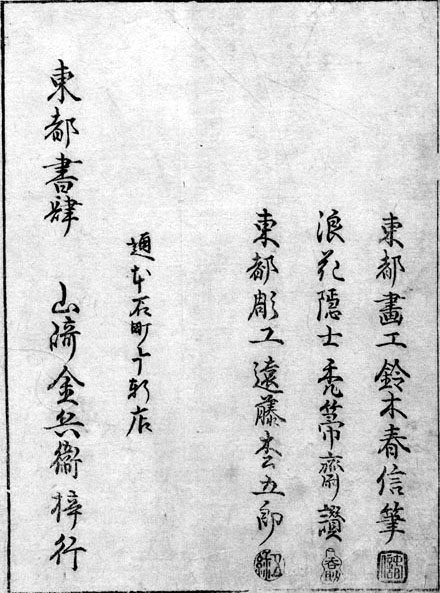 東都畫工鈴木春信筆
浪花隠士禿箒齋讃
東都彫工遠藤枩五郎
通本石町十軒店
東都書肆 山﨑金兵衞梓行